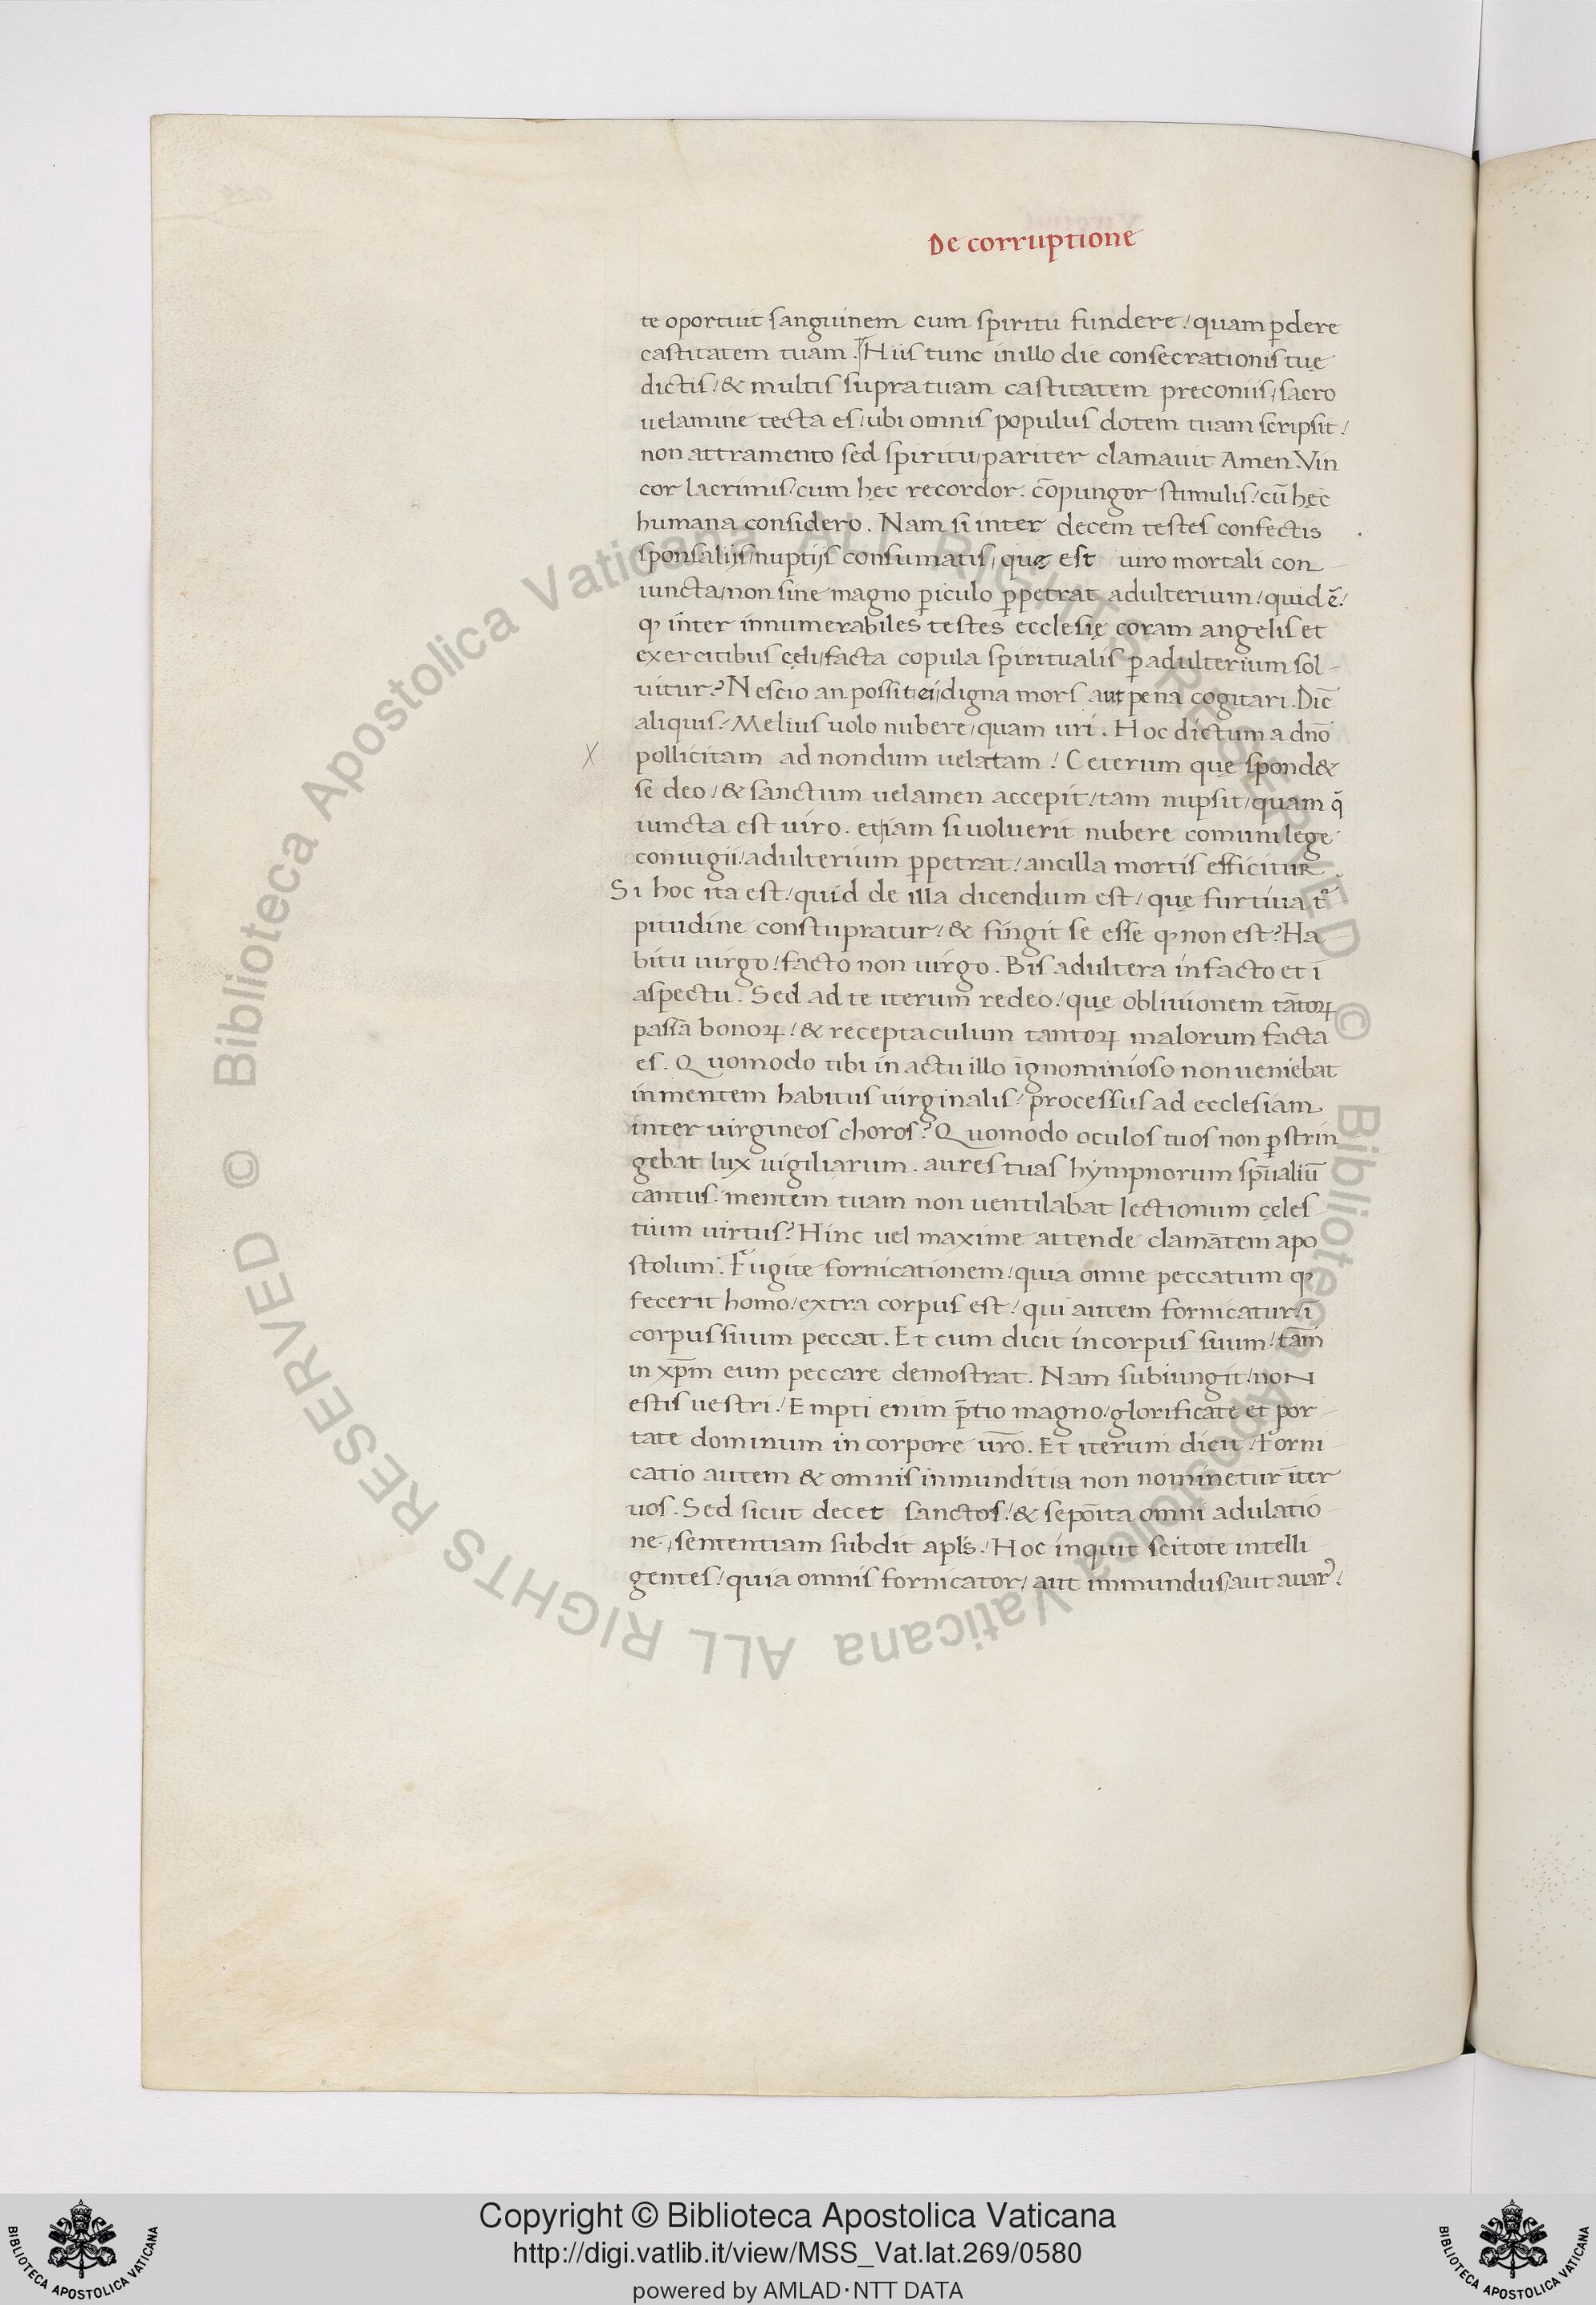 De corruptione
te oportuit sanguinem cum spiritu fundere / quam ꝑdere
castitatem tuam. Hiis tunc in illo die consecrationis tuę
dictis / & multis supra tuam castitatem preconiis / sacro
uelamine tecta es / ubi omnis populus dotem tuam scripsit /
non attramento sed spiritu / pariter clamauit Amen. Vin
cor lacrimis / cum hęc recordor. cōpungor stimulis / cū hęc
humana considero. Nam si inter decem testes confectis
sponsaliis / nuptijs consumatis / quę est uiro mortali con
iuncta / non sine magno ꝑiculo ꝑpetrat adulterium / quid ē /
ꝙ inter innumerabiles testes ecclesię coram angelis et
exercitibus cęli / facta copula spiritualis ꝑ adulterium sol
uitur? Nescio an possit ei / digna mors aut pena cogitari. Dic̄
aliquis / Melius uolo nubere / quam uri. Hoc dictum a dn̄o
pollicitam ad nondum uelatam / Ceterum quę spond&
se deo / & sanctum uelamen accepit / iam nupsit / quam q̄
iuncta est uiro. et iam si uoluerit nubere comuni lege
coniugii / adulterium ꝑpetrat / ancilla mortis efficitur.
Si hoc ita est / quid de illa dicendum est / quę furtiua t᷑
pitudine constupratur / & fingit se esse ꝙ non est? Ha
bitu uirgo / facto non uirgo. Bis adultera in facto et ī
aspectu. Sed ad te iterum redeo / quę obliuionem tātoꝝ
passā bonoꝝ / & receptaculum tantoꝝ malorum facta
es. Quomodo tibi in actu illo ignominioso non ueniebat
in mentem habitus uirginalis / processus ad ecclesiam
inter uirgineos choros? Quomodo oculos tuos non ꝑstrin
gebat lux uigiliarum. aures tuas hympnorum spūaliū
cantus. mentem tuam non uentilabat lectionum cęles
tium uirtus? Hinc uel maxime attende clamātem apo
stolum. Fugite fornicationem / quia omne peccatum ꝙ
fecerit homo / extra corpus est / qui autem fornicatur / ī
corpus suum peccat. Et cum dicit in corpus suum / tam̄
in xp̄m eum peccare demostrat. Nam subiungit / non
estis uestri / Empti enim p̄tio magno / glorificate et por
tate dominum in corpore ur̄o. Et iterum dicit / Forni
catio autem & omnis inmunditia non nominetur īter
uos. Sed sicut decet sanctos / & sepōita omni adulatio
ne / sententiam subdit apl's. / Hoc inquit scitote intelli
gentes / quia omnis fornicator / aut immundus / aut auarꝰ /
X
© Biblioteca Apostolica Vaticana ALL RIGHTS RESERVED © Biblioteca Apostolica Vaticana ALL RIGHTS RESERVED
Copyright © Biblioteca Apostolica Vaticana
http://digi.vatlib.it/view/MSS_Vat.lat.269/0580
powered by AMLAD·NTT DATA
BIBLIOTECA APOSTOLICA VATICANA
BIBLIOTECA APOSTOLICA VATICANA